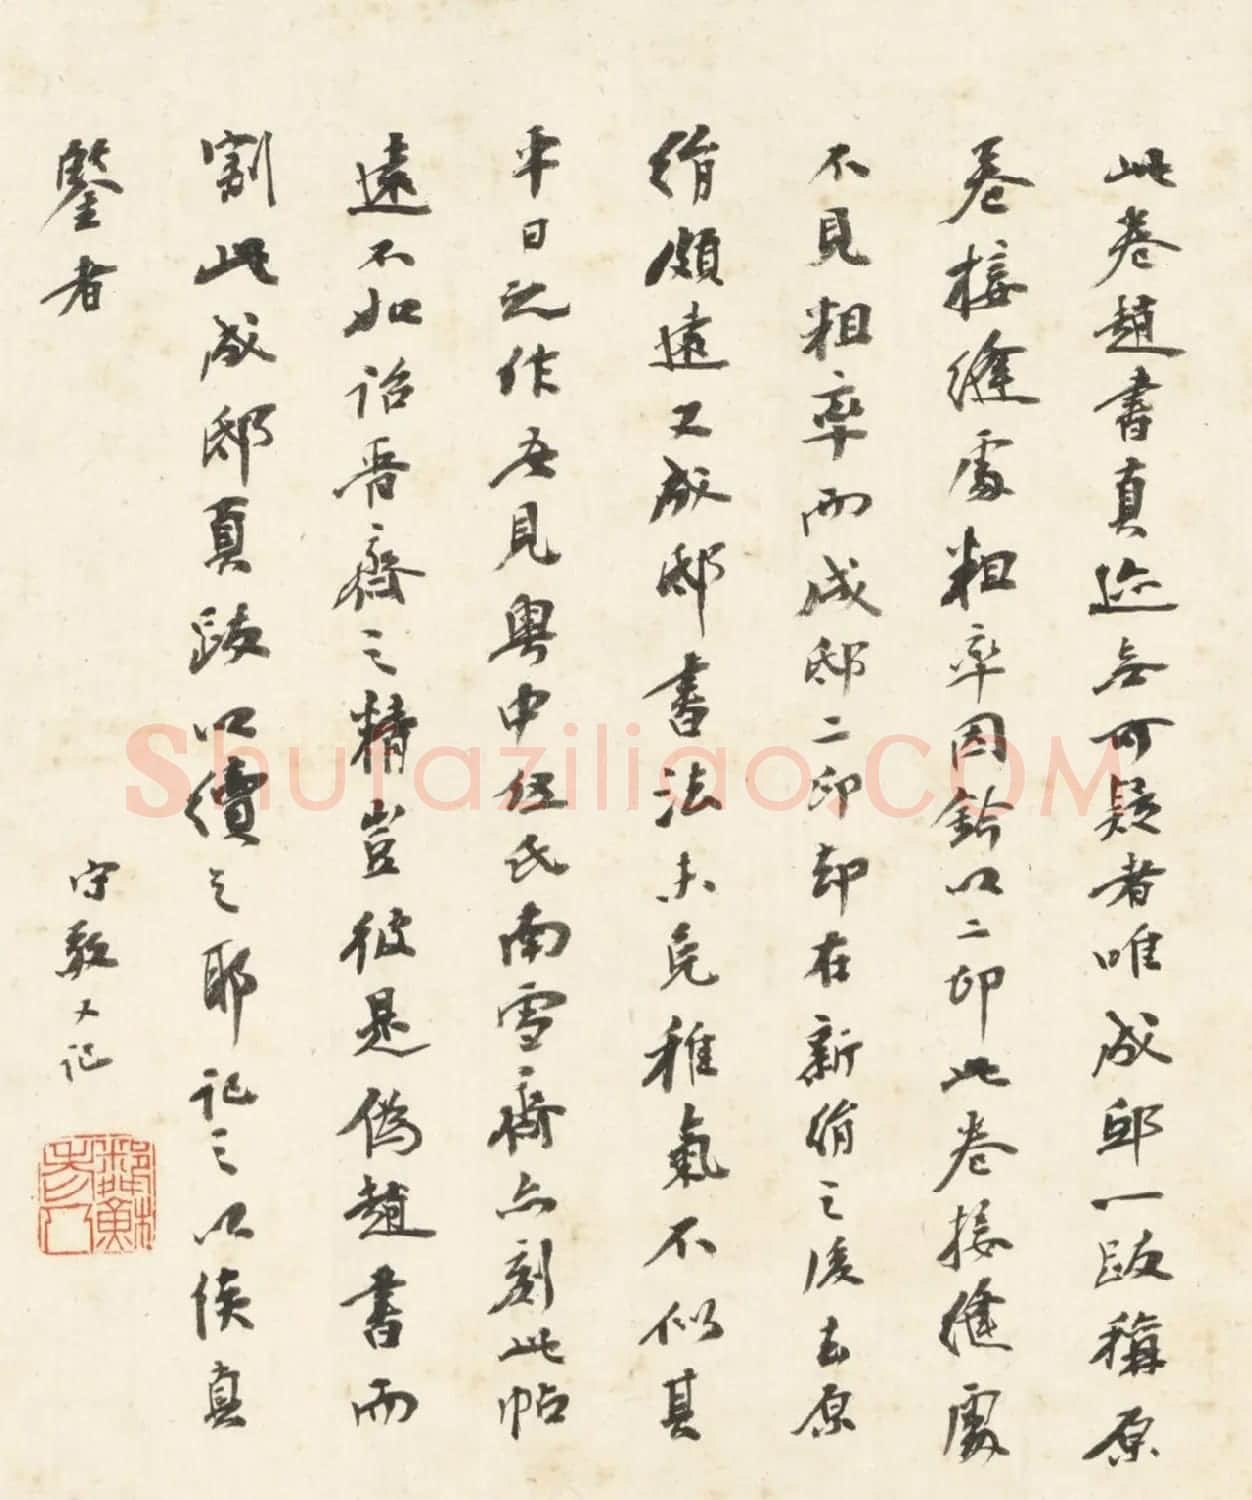 此卷趙書真迹無可疑者唯成邸一跋稱原
卷接縫處粗率因鈐以二印此卷接縫處
不見粗率而成邸二印却在新絹之後去原
絹頗遠又成邸書法未免稚氣不似其
平日之作吾見粵中伍氏南雪齋亦刻此帖
遠不如詒晉齋之精豈彼是偽趙書而
割此成邸真跋以價之耶記之以俟真
鑒者
守敬又記
鄰蘇老人
Shufaziliao.COM